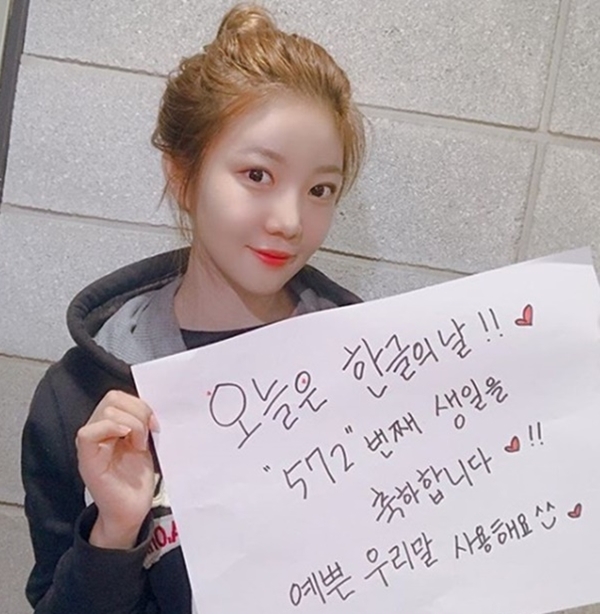 오늘은 한글의날!!
"572"번째 생일을
축하합니다 !!
예쁜 우리말 사용해요^^